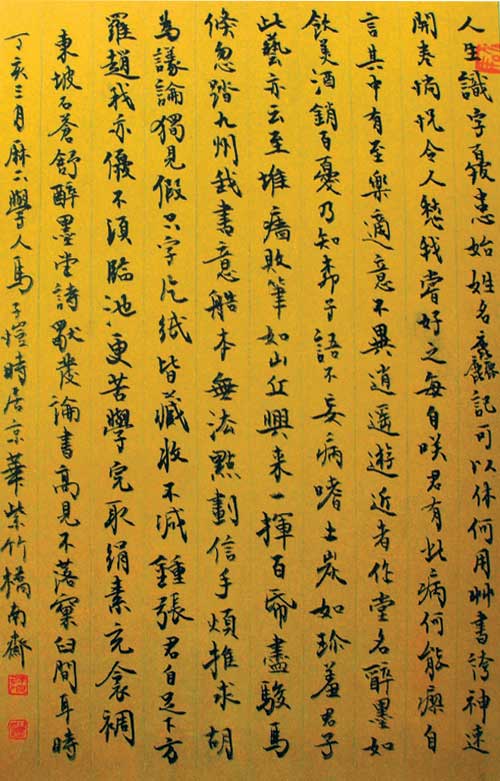 人生識字憂患始姓名麤記可以休何用艸書誇神速
開卷惝怳令人愁我嘗好之每自咲君有此病何能瘳自
言其中有至樂適意不異逍遙遊近者作堂名醉墨如
飲美酒銷百憂乃知柳子語不妄病嗜土炭如珍羞君于
此藝亦云至堆牆敗筆如山丘興来一揮百帋盡駿馬
倏忽踏九州我書意造本無法點劃信手煩推求胡
為議論獨見假只字片紙皆藏收不減鍾張君自足下方
羅趙我亦優不須臨池更苦學完取絹素充衾裯
東坡石蒼舒醉墨堂詩發論書高見不落窠臼間耳時
丁亥三月麻學人馬子愷時居京華紫竹橋南齋